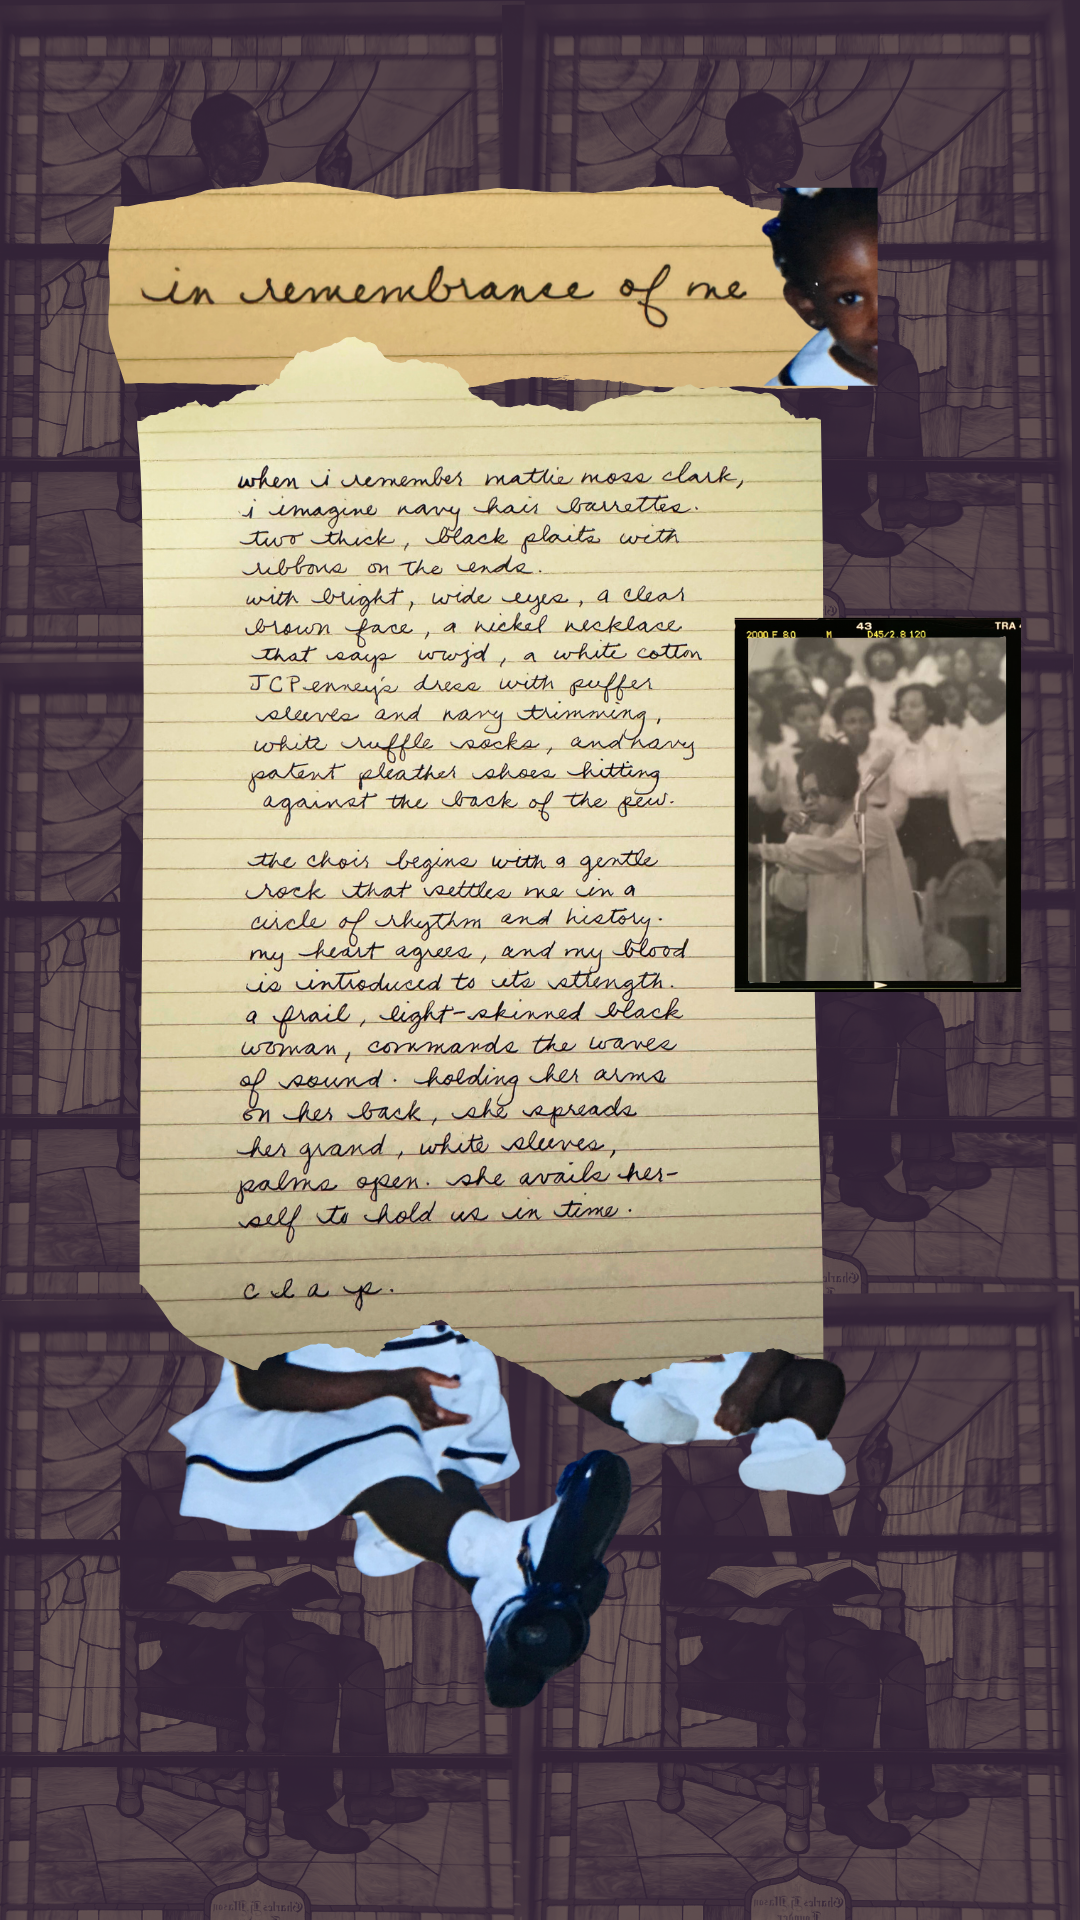 in remembrance of me
when i remember mattie moss clark,
i imagine navy hair barrettes.
two thick, black plaits with
ribbons on the ends.
with bright, wide eyes, a clear
brown face, a nickel necklace
that says wwjd, a white cotton
JCPenney's dress with puffer
sleeves and navy trimming,
white ruffle socks, and navy
patent pleather shoes hitting
against the back of the pew.
the choir begins with a gentle
rock that settles me in a
circle of rhythm and history.
my heart agrees, and my blood
is introduced to its strength.
a frail, light-skinned black
woman, commands the waves
of sound. holding her arms
on her back, she spreads
her grand, white sleeves,
palms open. she avails her-
self to hold us in time.
c l a p.
43 TRA
2000 F 8.0 M D45/2.8 120
Charles H. Mason
Founder